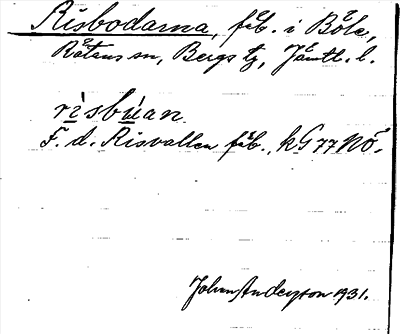 Risbodarna, fäb. i Böle,
Rätans sn, Bergs tg, Jämtl. l.
rìsbúan
F. d. Risvallen fäb., kG 77 NÖ.
Johan Anderson 1931.